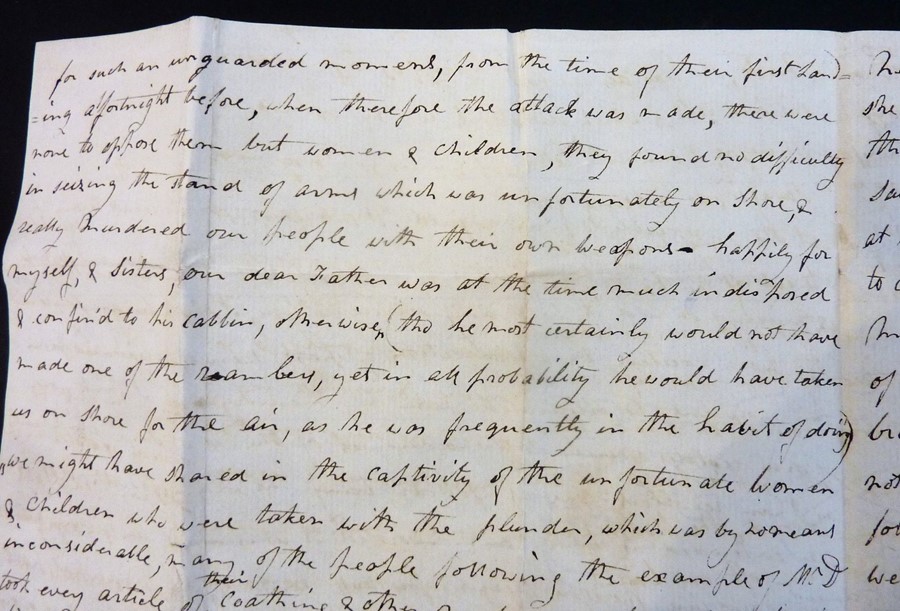 for such an unguarded moment, from the time of their first land=
=ing a fortnight before, when therefore the attack was made, there were
none to oppose them but women & children, they found no difficulty
in seizing the stand of arms which was unfortunately on shore, &
really murdered our people with their own weapons - happily for
myself, & sisters, our dear Father was at the time much indisposed
& confin'd to his cabbin, otherwise, (tho he most certainly would not have
made one of the ramblers, yet in all probability he would have taken
us on shore for the air, as he was frequently in the habit of doing)
we might have shared in the captivity of the unfortunate women
& children who were taken with the plunder, which was by no means
inconsiderable, many of the people following the example of Mr D
took every article of their coathing & other
he
she
th
sa
at
to
m
of
br
not
for
we